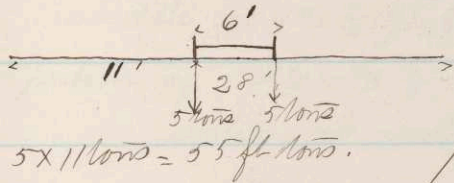 6'
11'
28'
5 tons 5 tons
5 x 11 tons = 55 ft tons.